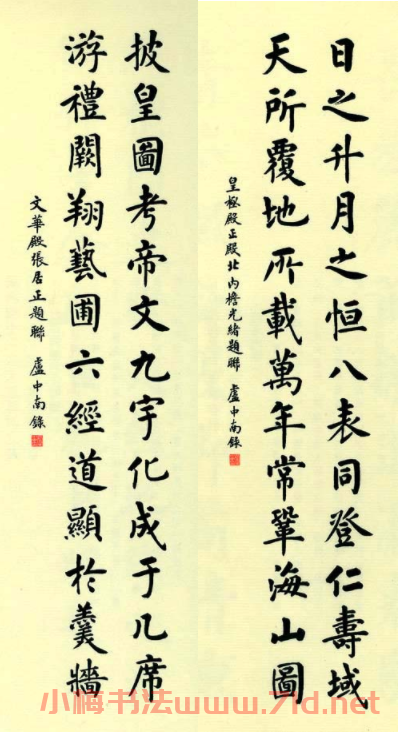 日之升月之恒八表同登仁壽域
天所覆地所載萬年常鞏海山圖
皇極殿正殿北内檐光緒題聯 盧中南錄
披皇圖考帝文九宇化成于几席
游禮闕翔藝圃六經道顯於羹牆
文華殿張居正題聯 盧中南錄
小梅书法www.71d.net